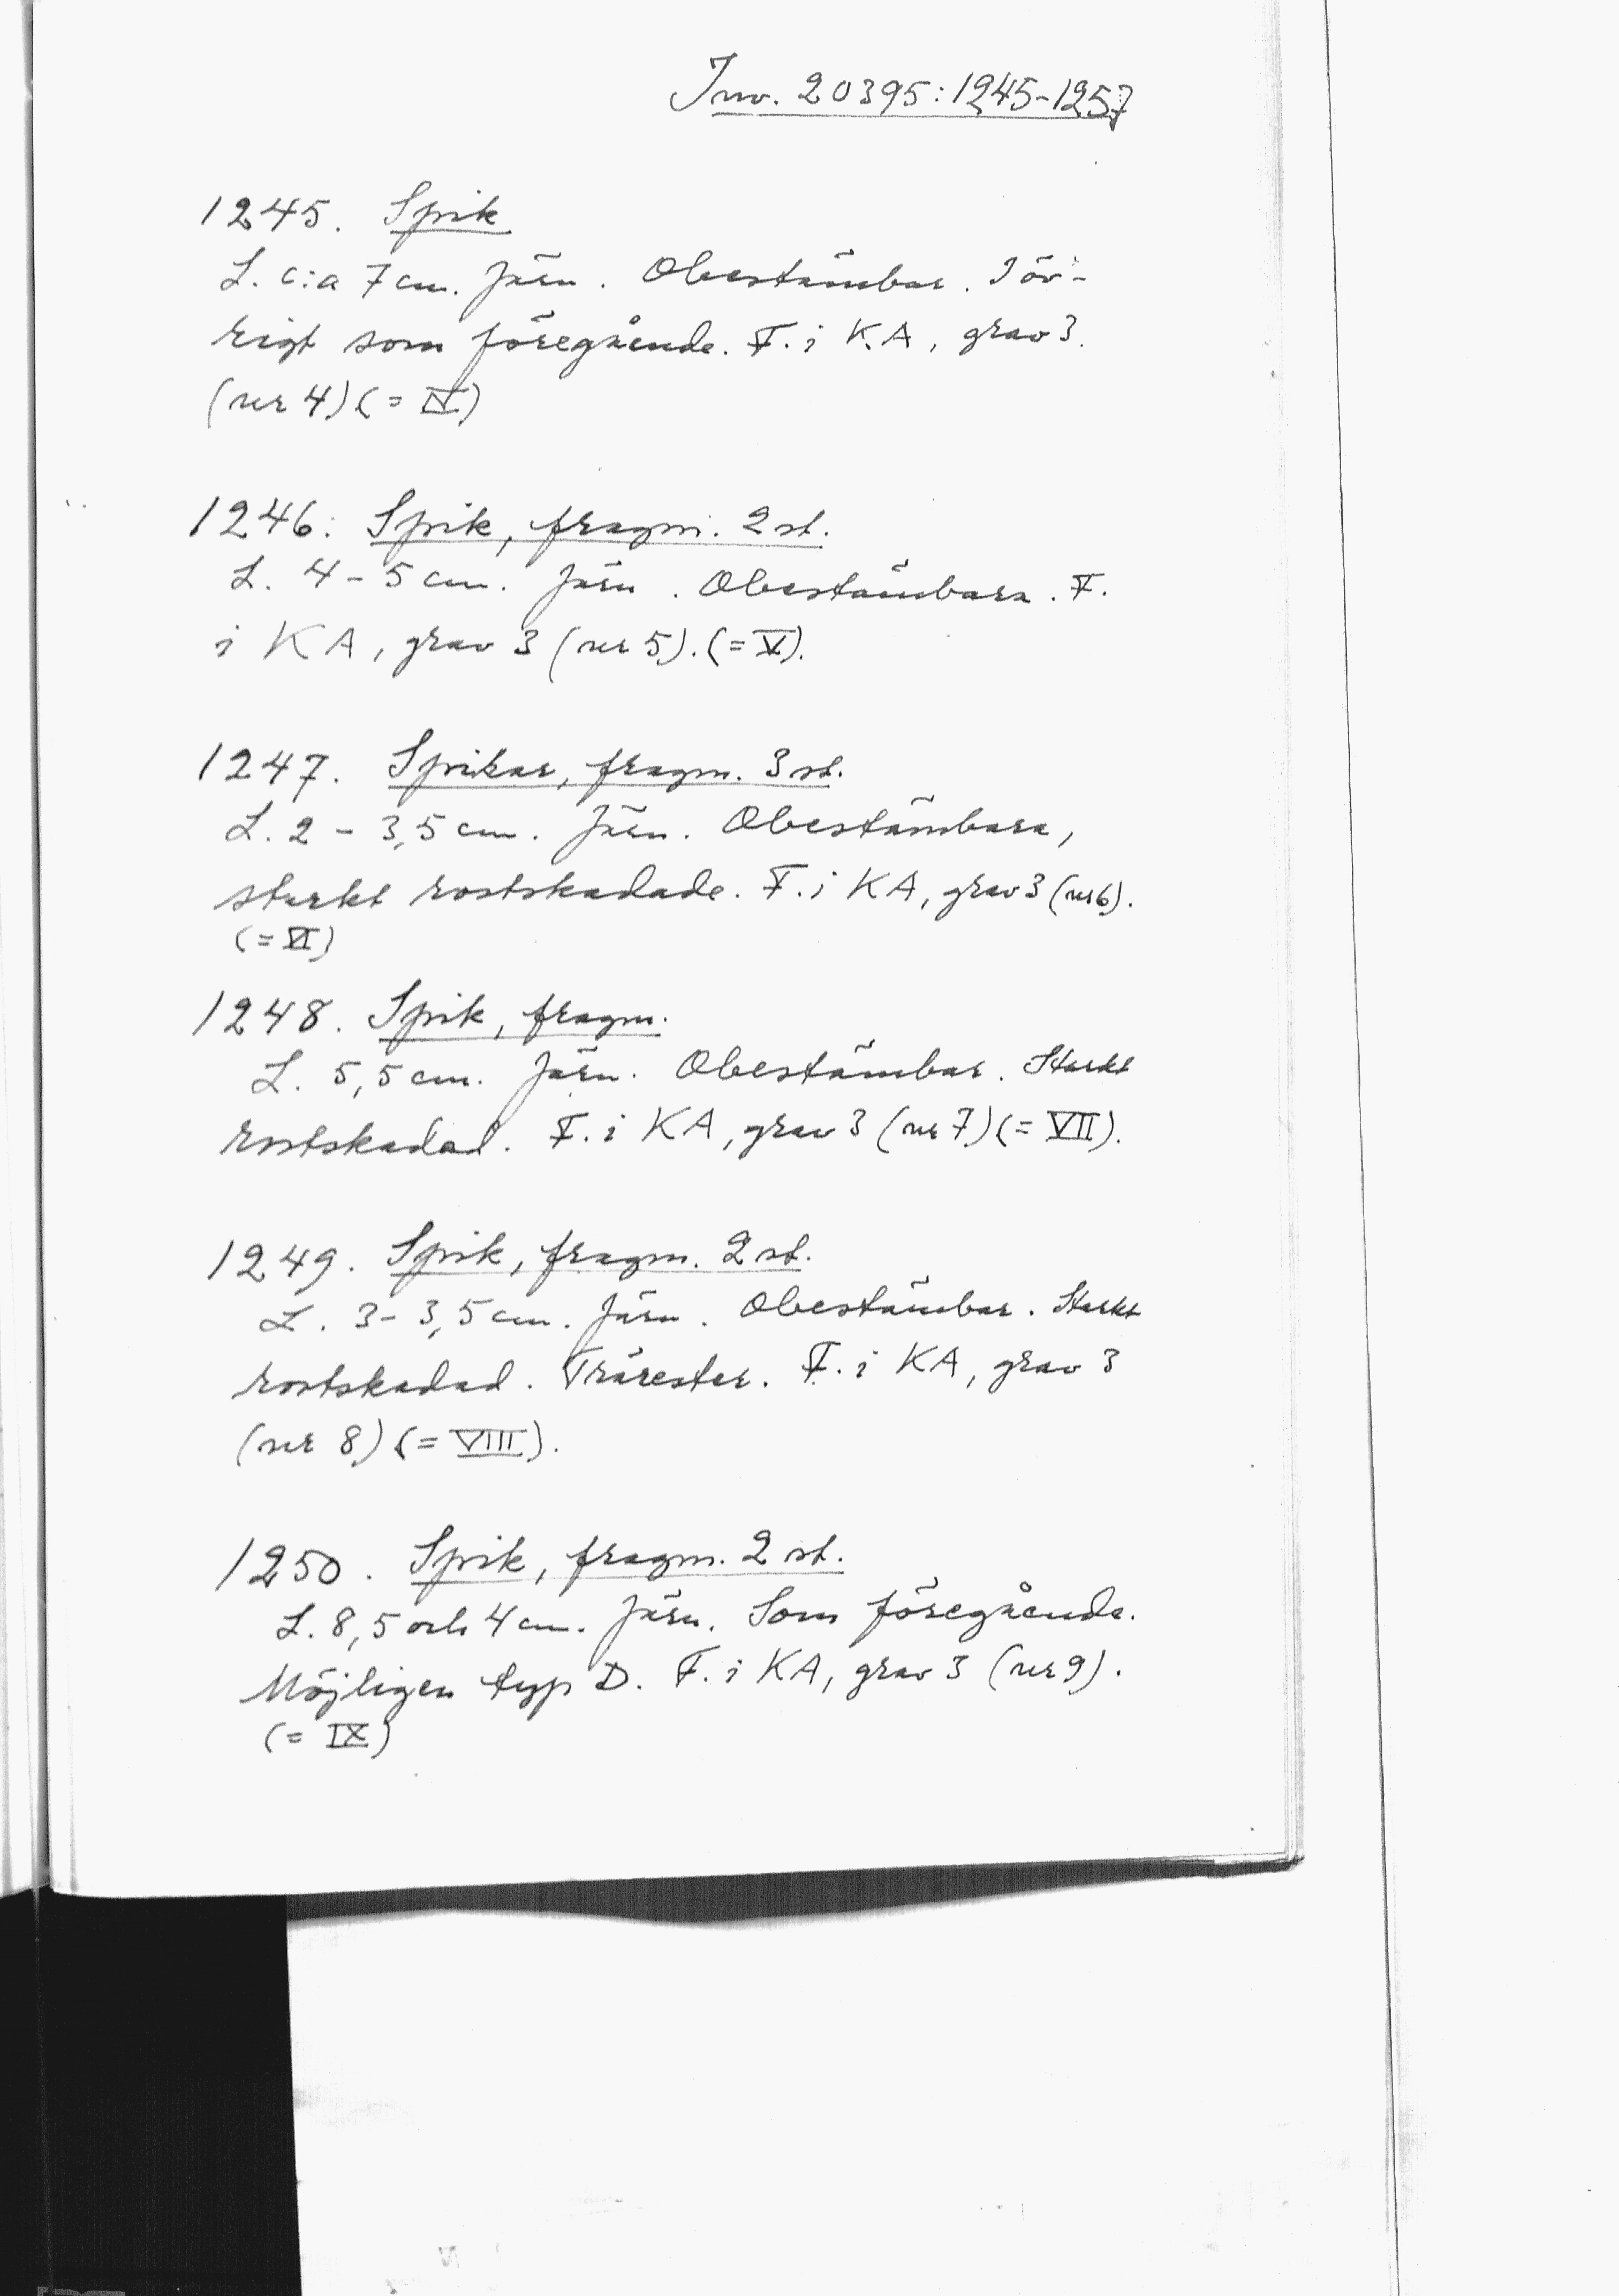 Inv. 20395:1245-1257
1245. Spik
L. c:a 7 cm. Järn. Obestämbar. I öv-
rigt som föregående. F. i KA, grav 3.
(nr 4) (= IV)
1246. Spik, fragm. 2 st.
L. 4-5 cm. Järn. Obestämbara. F.
i KA, grav 3 (nr 5). (= V).
1247. Spikar, fragm. 3 st.
L. 2 - 3,5 cm. Järn. Obestämbara,
starkt rostskadade. F. i KA, grav 3 (nr 6).
(= VI)
1248. Spik, fragm.
L. 5,5 cm. Järn. Obestämbar. Starkt
rostskadad. F. i KA, grav 3 (nr 7) (= VII).
1249. Spik, fragm. 2 st.
L. 3-3,5 cm. Järn. Obestämbar. Starkt
rostskadad. Trärester. F. i KA, grav 3
(nr 8) (= VIII).
1250. Spik, fragm. 2 st.
L. 8,5 och 4 cm. Järn. Som föregående.
Möjligen typ D. F. i KA, grav 3 (nr 9).
(= IX)